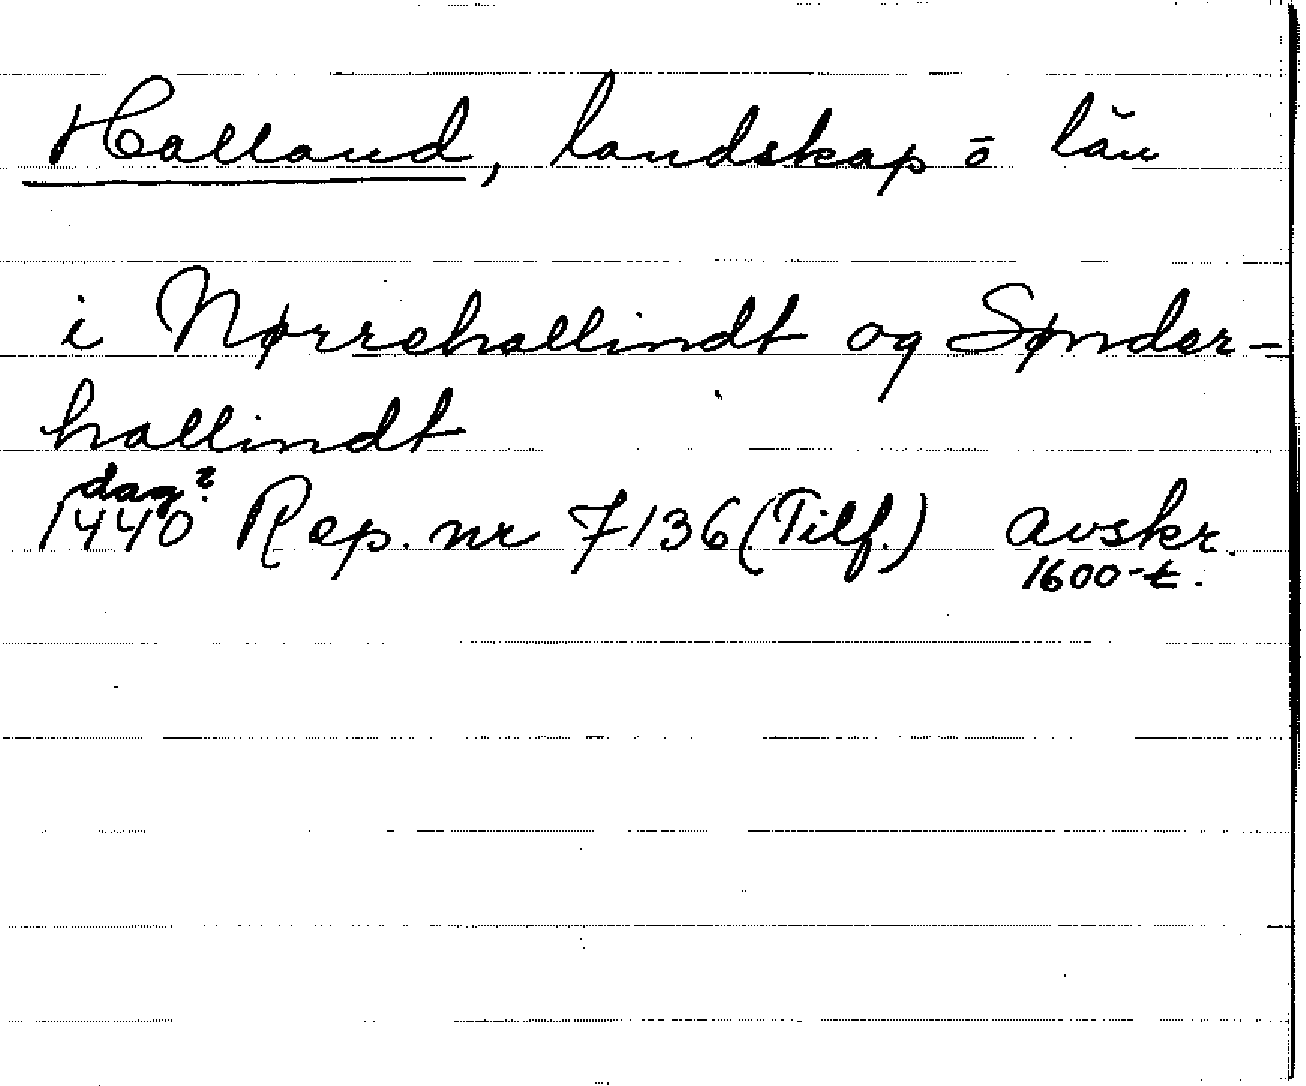 Halland, landskap o län
i Nørrehallindt og Sønder-
hallindt
dag?
1440 Rep. nr 7136 (Tilf.) avskr.
1600-t.